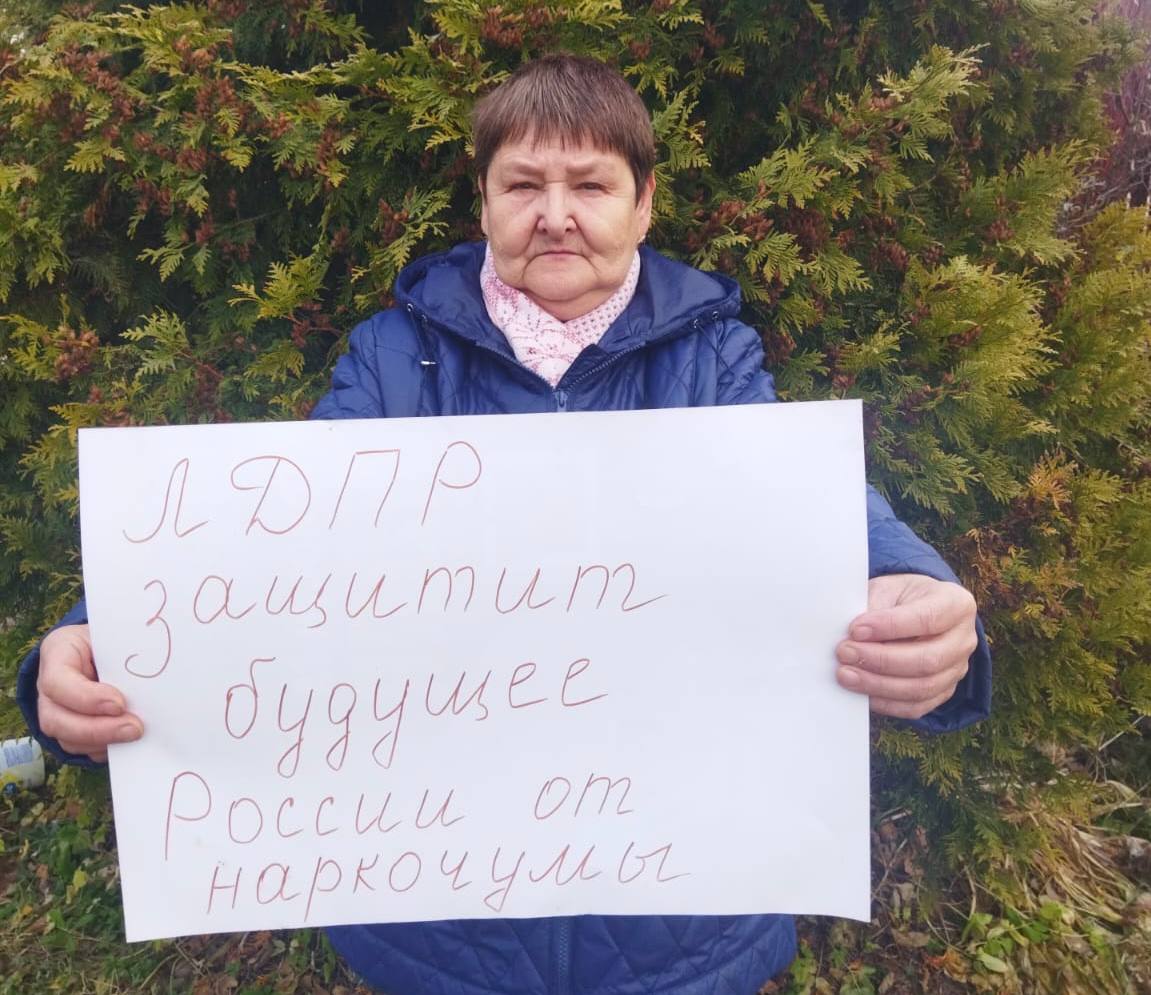 ЛДПР
защитит
будущее
России от
наркочумы